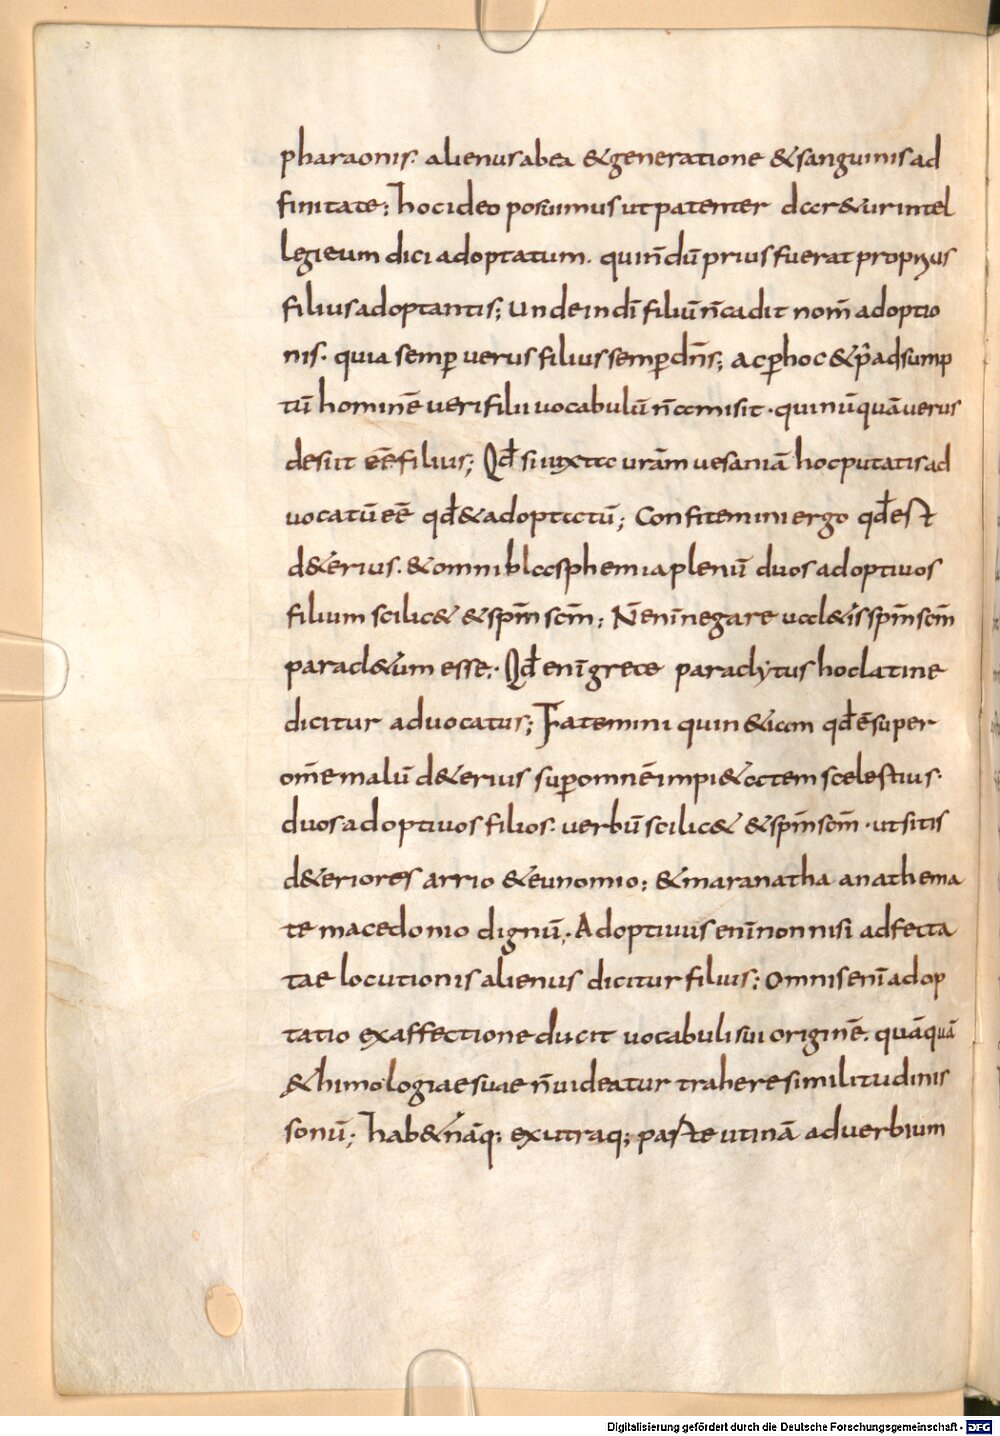 pharaonis. alienus ab ea & generatione & sanguinis ad
finitate; hoc ideo posuimus ut patenter det&ur intel
legi eum dici adoptatum. qui n̄dū prius fuerat proprius
filius adoptantis; Unde in dī filiū n̄ cadit nom̄ adoptio
nis. quia semꝑ uerus filius semꝑ dn̄s; ac ꝑ hoc & p̄ adsump
tū hominē ueri filii uocabulū n̄ amisit. qui nūquā uerus
desiit eē filius; Qđ si iuxta urām uesaniā hoc putatis ad
uocatū eē qđ & adoptatū; Confitemini ergo qđ est
d&erius. & omni blasphemia plenū duos adoptiuos
filium scilic& & spm̄ scm̄; N̄ enī negare ual&is spm̄ scm̄
paracl&um esse; Qđ enī grece paraclytus hoc latine
dicitur aduocatus; Fatemini quin &iam qđ ē super
om̄e malū d&erius suꝑ omnē impi&atem scelestius.
duos adoptiuos filios. uerbū scilic& & spm̄ scm̄. ut sitis
d&eriores arrio & eunomio; & maranatha anathema
te macedonio dignū; Adoptiuus enī non nisi adfecta
tae locutionis alienus dicitur filius; Omnis enī adop
tatio ex affectione ducit uocabuli sui originē. quāquā
& himologiae suae n̄ uideatur trahere similitudinis
sonū; hab& nāq; ex utraq; parte utinā aduerbium
Digitalisierung gefördert durch die Deutsche Forschungsgemeinschaft - DFG